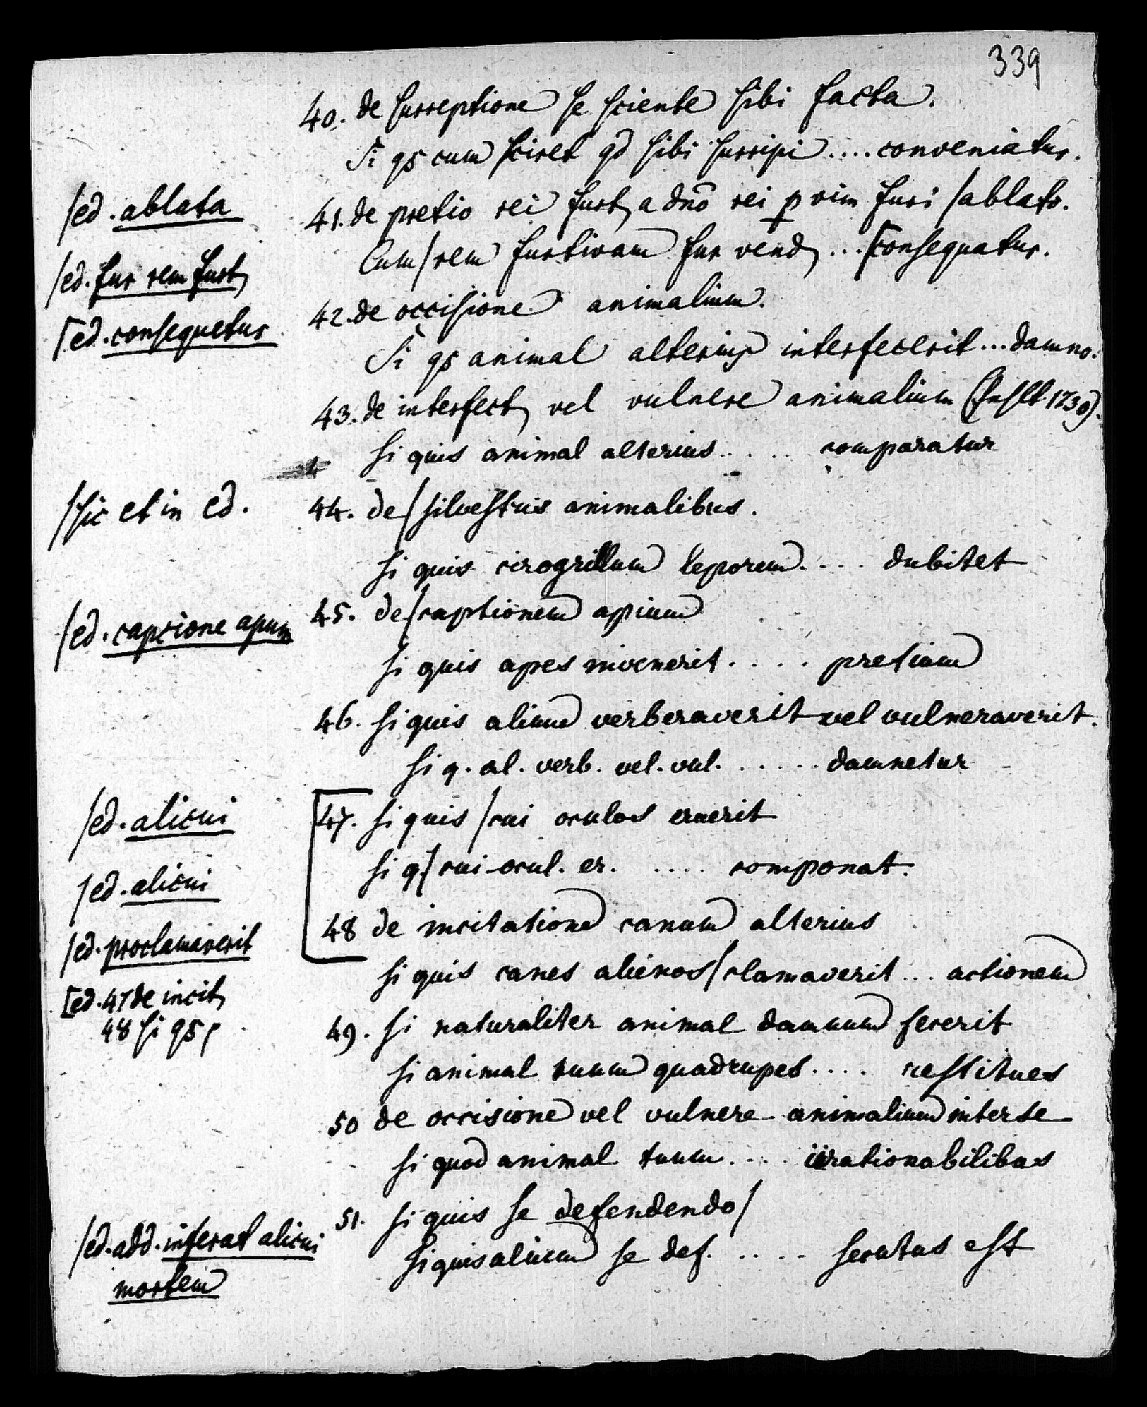 339
40. de surreptione se sciente sibi facta.
Si qs cum sciret qd sibi surripi .... conveniatur.
/ed. ablata
41. de pretio rei furt, a dno rei p vim furi /ablato.
/ed. fur rem furt,
Cum/rem furtivam fur vend, ... [consequatur.
[ed. consequetur
42. de occisione animalium.
Si qs animal alterius interfecerit ... damno.
43. de interfect, vel vulnere animalium
si quis animal alterius ..... comparatur
/sic et in ed.
44. de/silvestris animalibus.
si quis cirogrillum leporem .... dubitet
/ed. capcione apum
45. de/captionem apium
si quis apes invenerit .... pretium
46. si quis alium verberaverit vel vulneraverit.
si q. al. verb. vel. vul. ..... damnetur
/ed. alicui
47. si quis /cui oculos eruerit
/ed. alicui
si q/cui ocul. er. .... componat.
/ed. proclamaverit
48 de incitatione canum alterius
[ed. 47 de incit,
si quis canes alienos/clamaverit ... actionem
48 si qs,
49. si naturaliter animal damnum fecerit
si animal tuum quadrupes .... restitues
50 de occisione vel vulnere animalium inter se
si quod animal tuum .... irrationabilibus
51. si quis se defendendo/
/ed. add. inferat alicui
mortem
si quis alium se def. .... secutus est